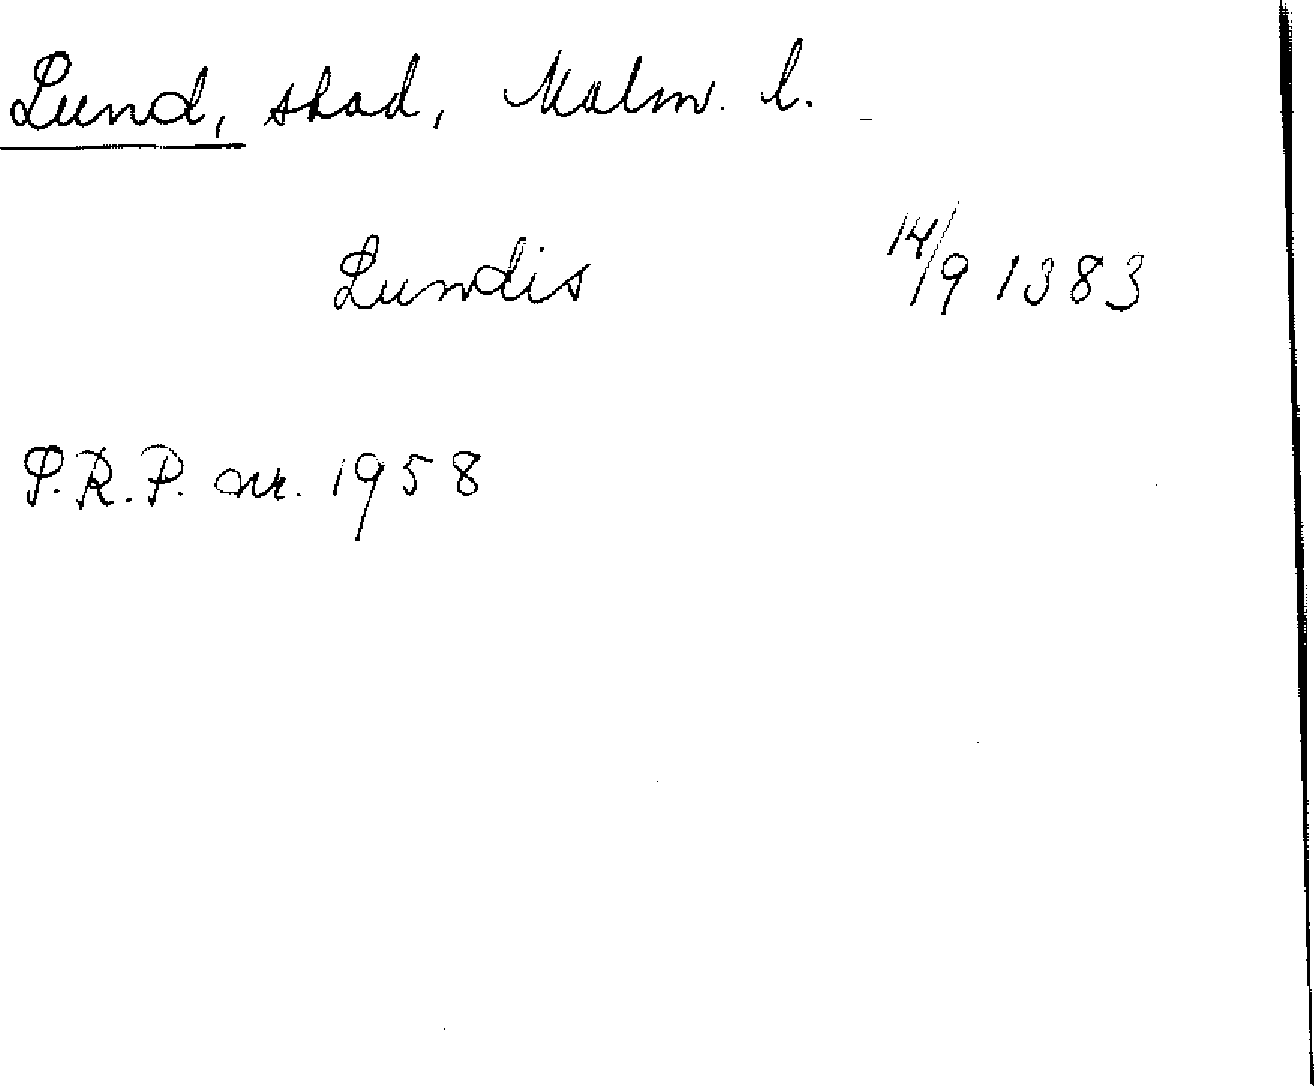 Lund, stad, Malm. l.
Lundis 14/9 1383
P.R.P. nr. 1958